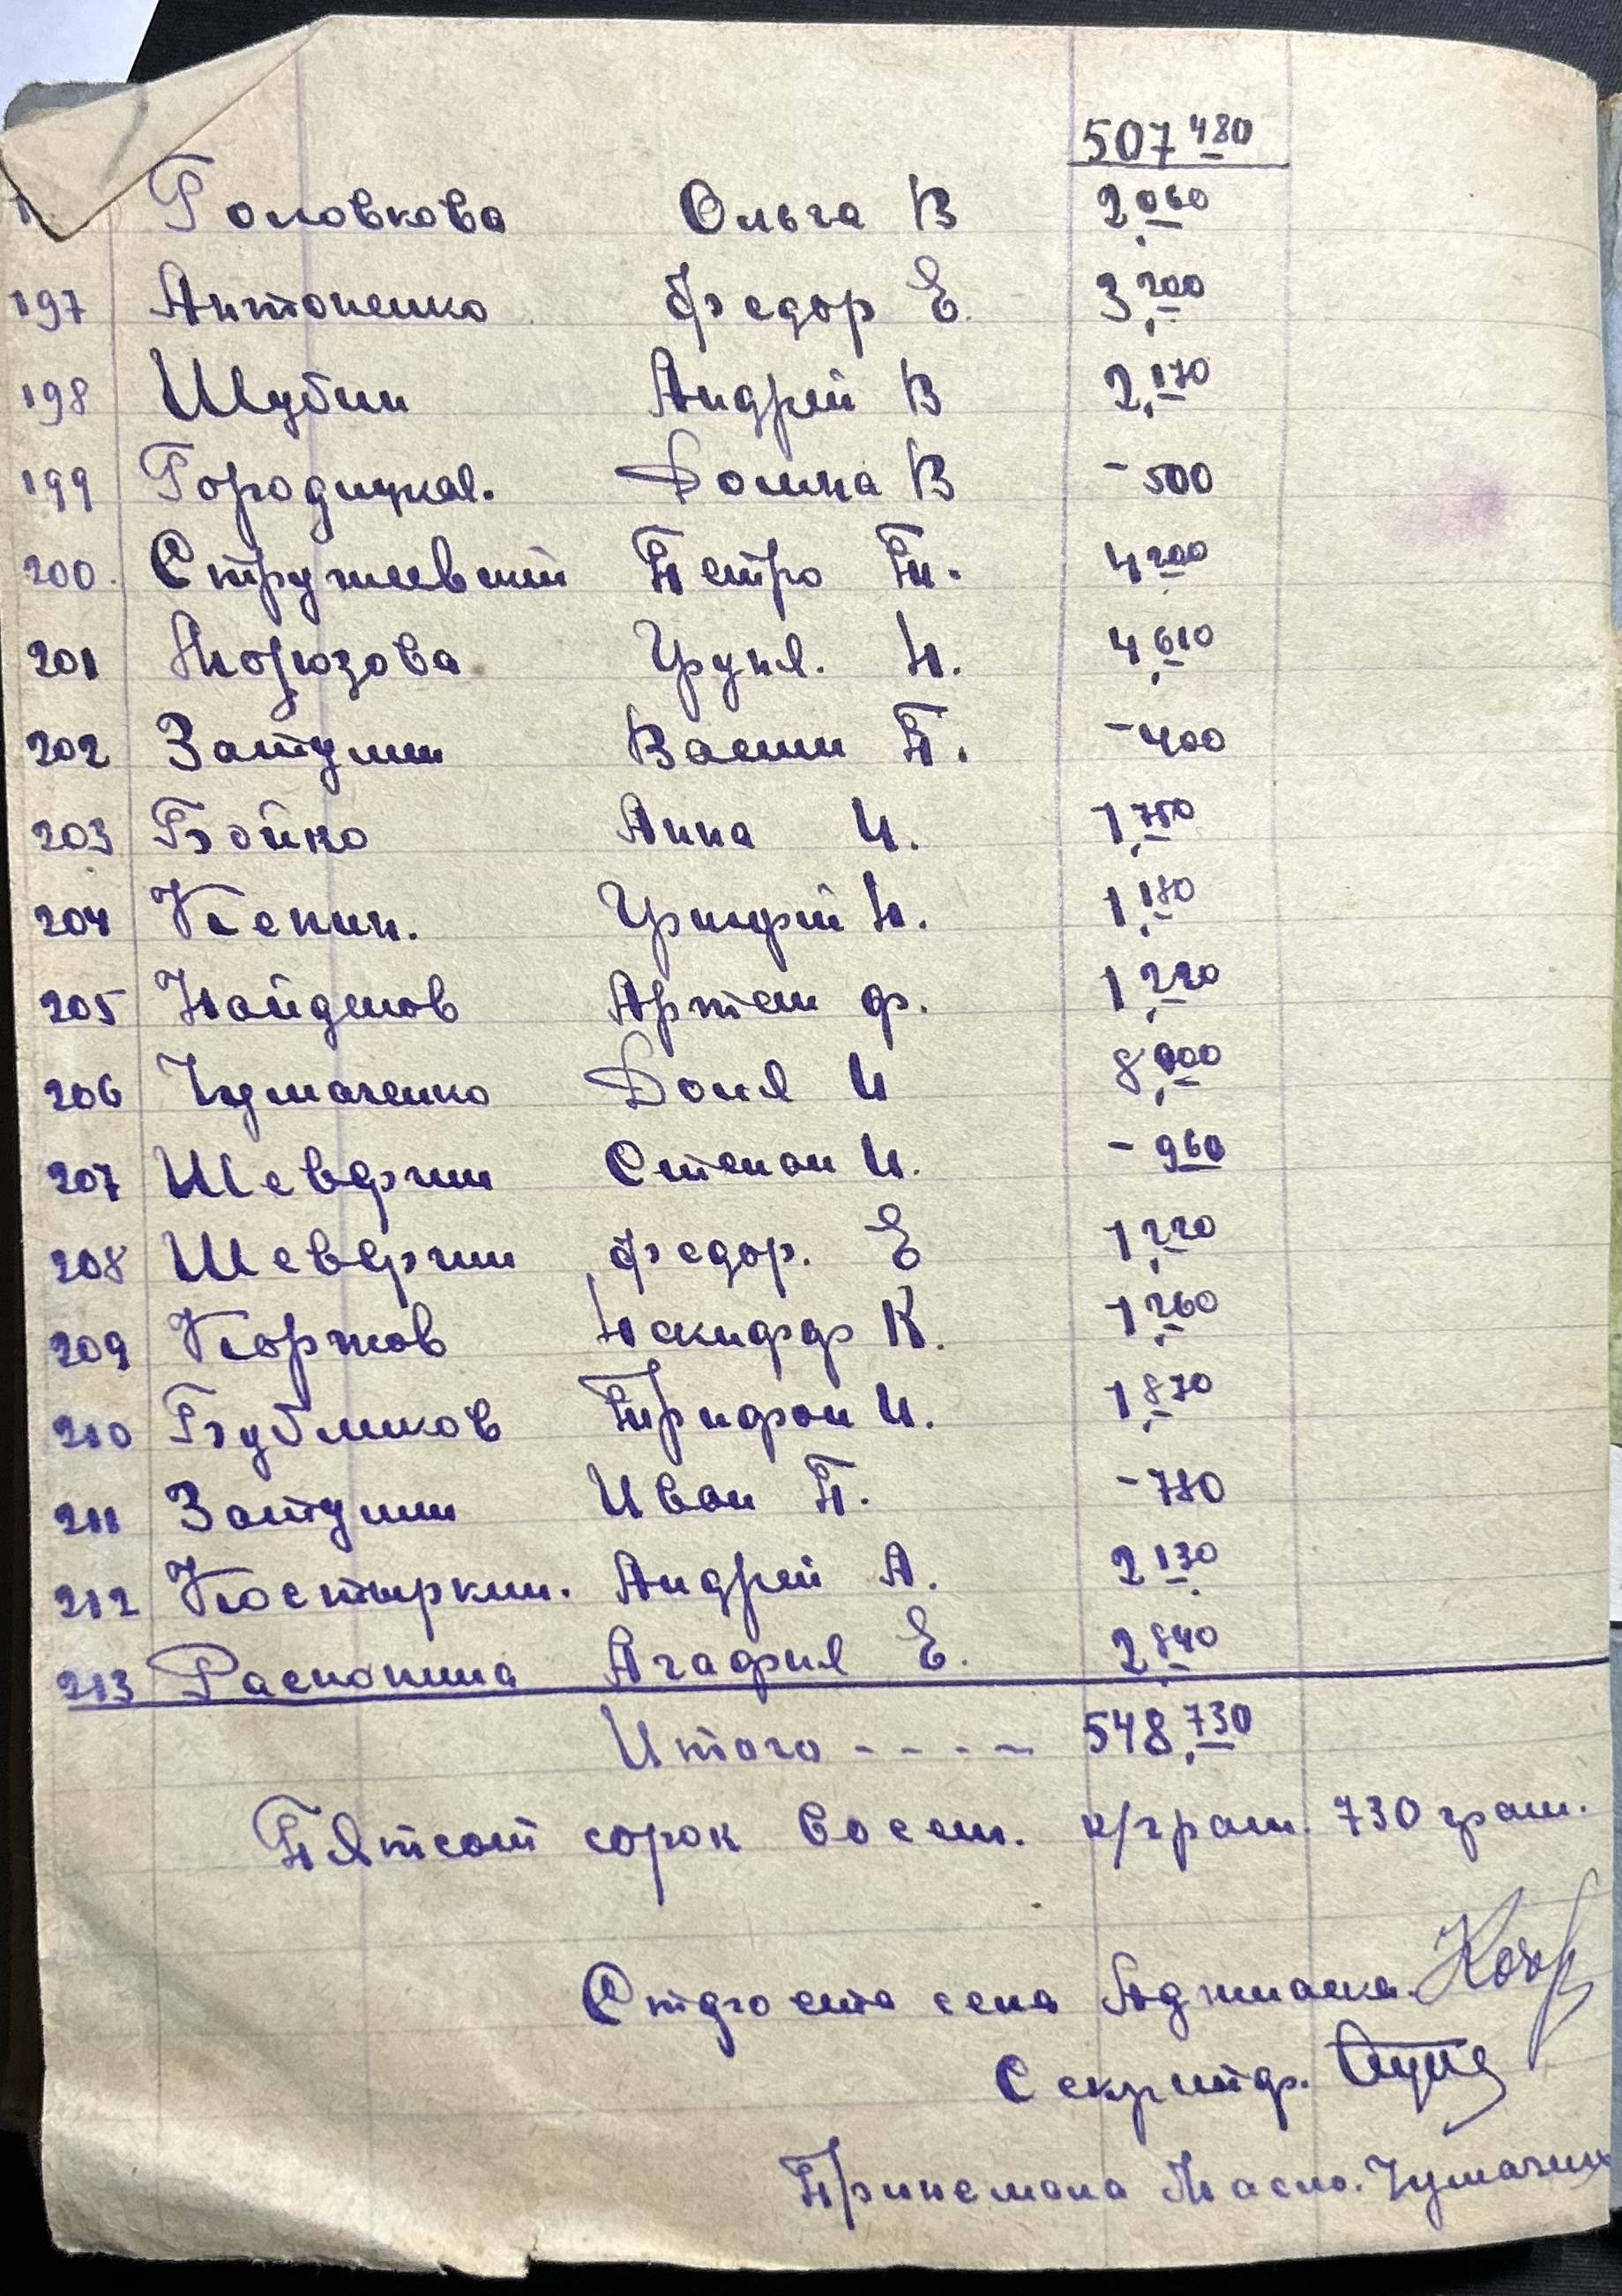 507 480
Головкова Ольга В 2,060
197 Антоненко Федор Е. 3,200
198 Шубин Андрей В 2,170
199 Городицкая. Домна В -500
200. Стружевский Петро П. 4 200
201 Морозова Груня. Н. 4,610
202 Затулин Васил П. -400
203 Бойко Анна И. 1,750
204 Кенин. Григрий Н. 1,180
205 Найденов Артем ф. 1,220
206 Чумаченко Доня И 8,900
207 Шеверин Степан И. - 960
208 Шеверин Федор. Е 1,220
209 Коржов К. 1,260
210 Бубликов Трифон И. 1,870
211 Затулин Иван П. -780
212 Костыркин. Андрей А. 2 130.
213 Распопина Агафия Е. 2,840
Итого ---- 548,730
Пятсот сорок восем. к/грам. 730 грам.
Староста села
Секритар.
Принемала Масло. Чумачен